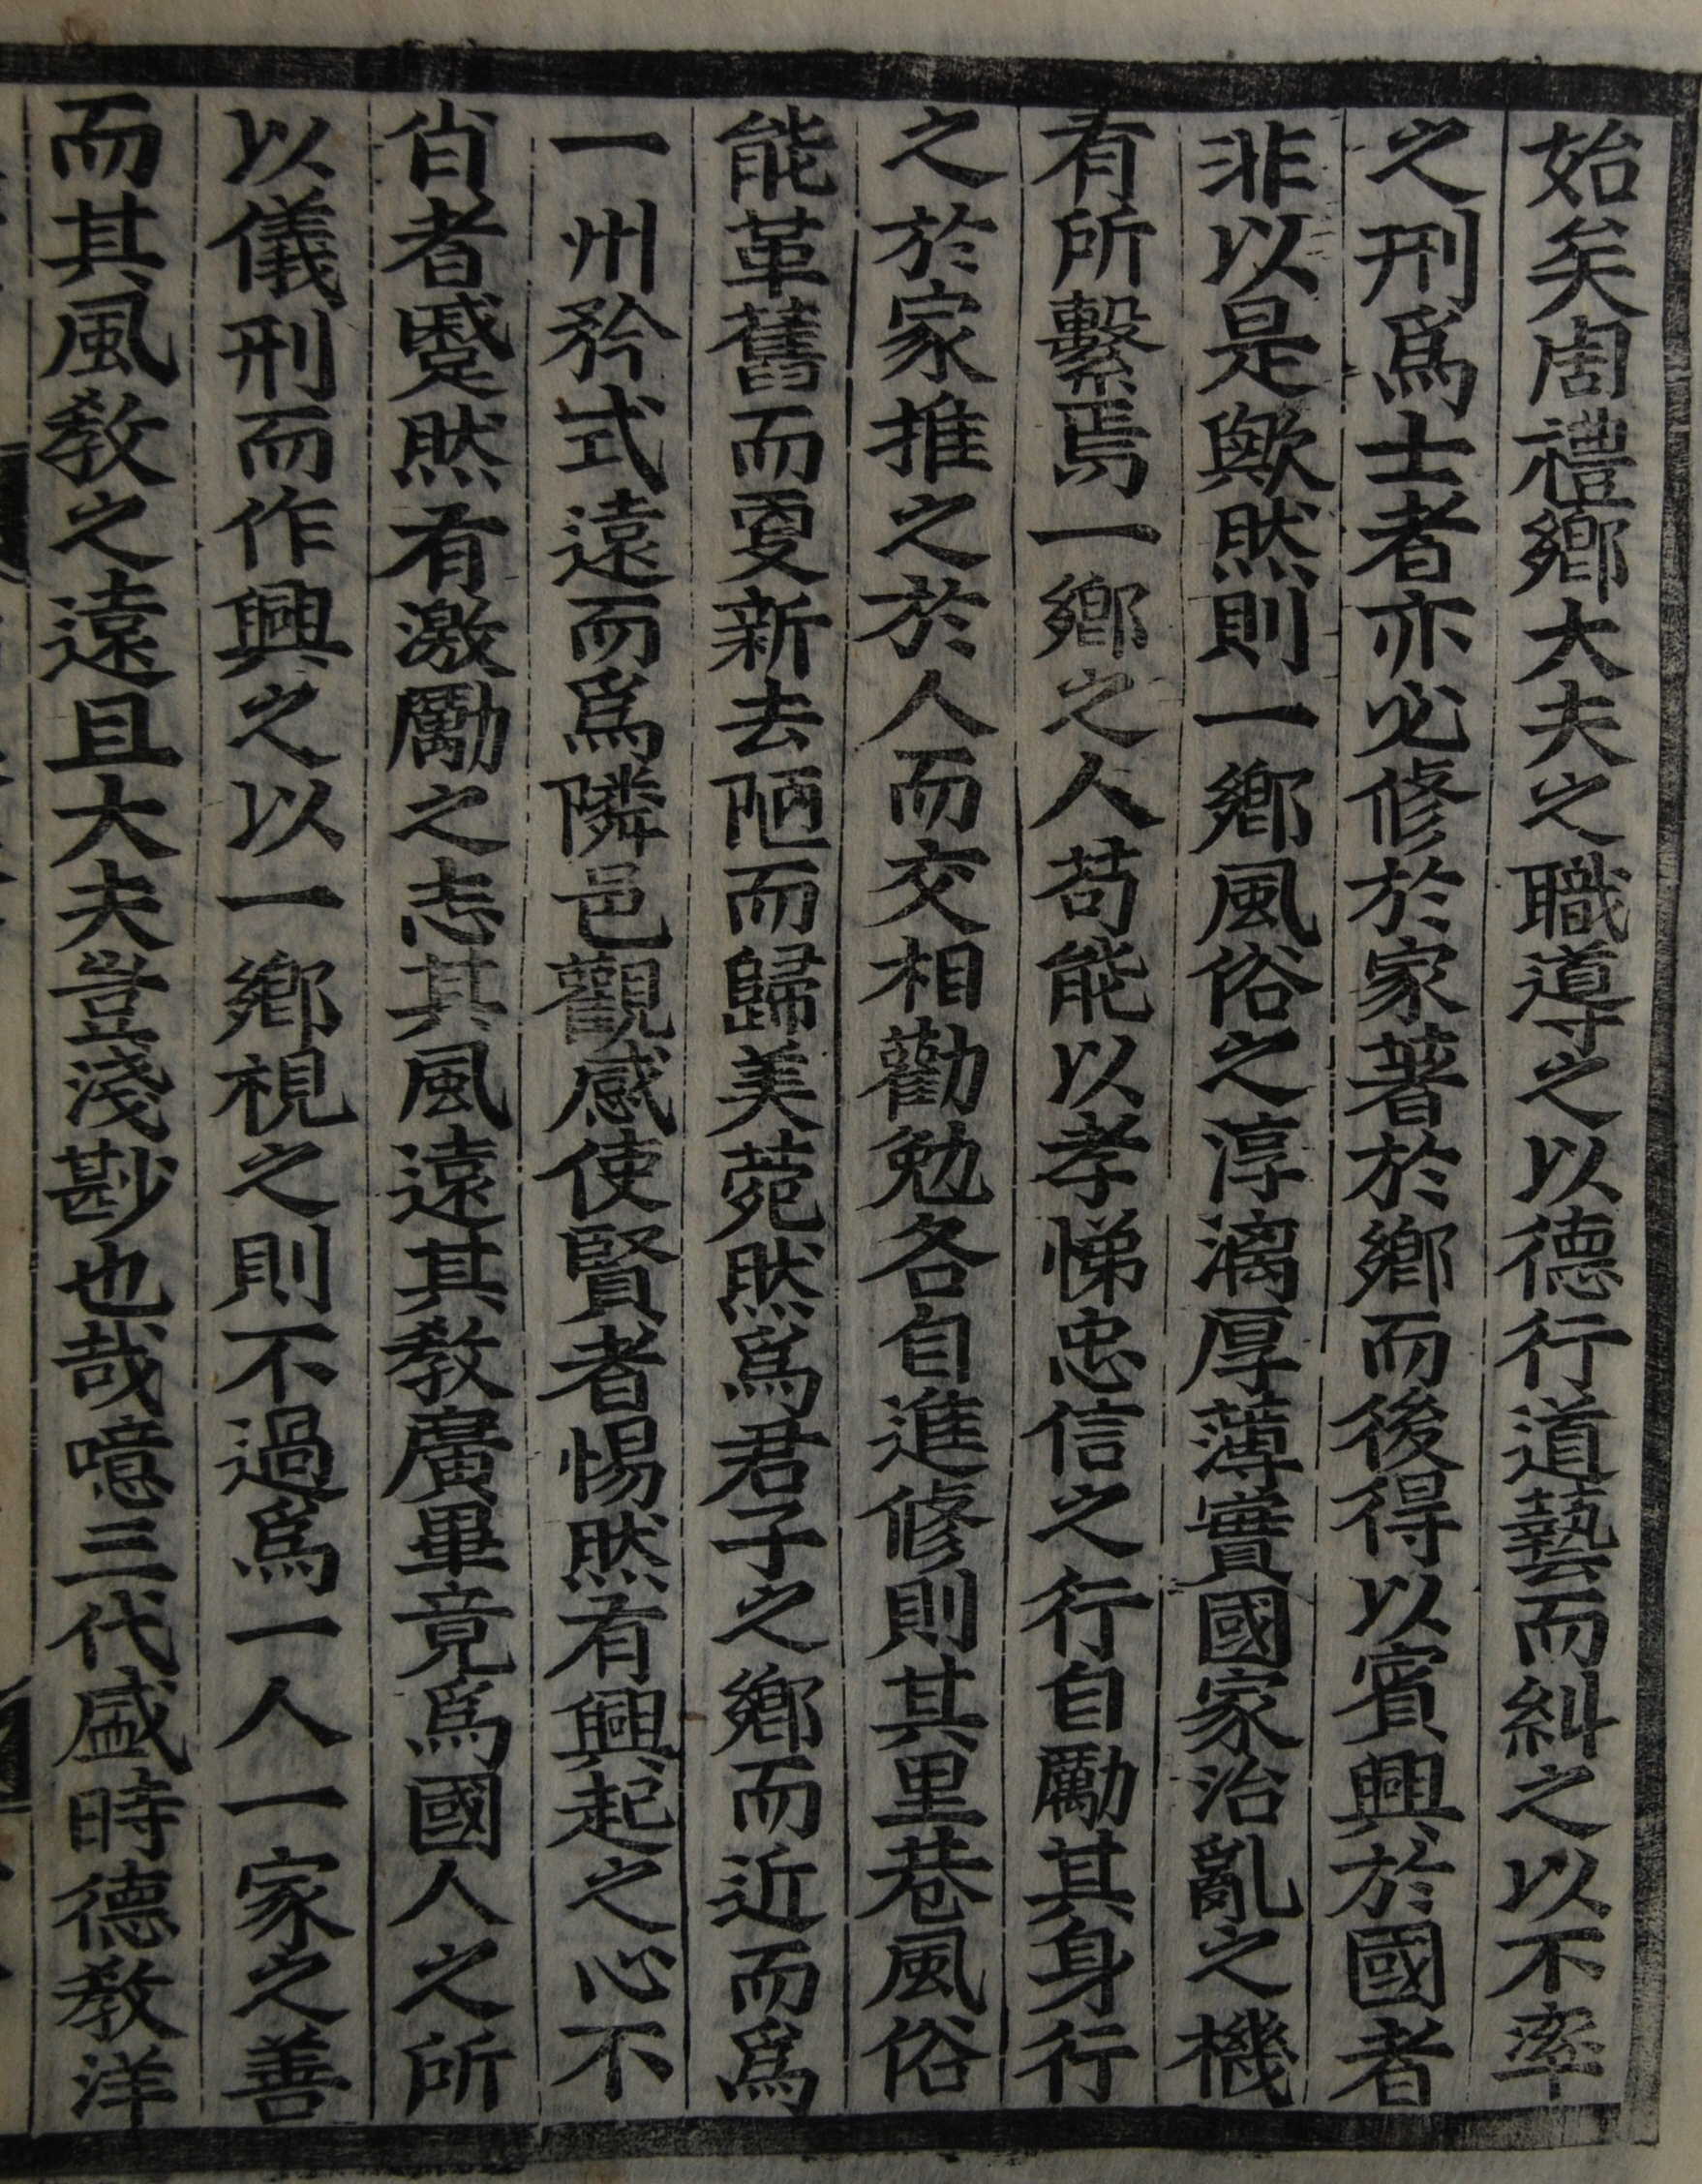 始矣周禮鄕大夫之職導之以德行道藝而糾之以不率
之刑爲士者亦必修於家著於鄕而後得以賓興於國者
非以是歟然則一鄕風俗之淳漓厚薄實國家治亂之機
有所繫焉一鄕之人苟能以孝悌忠信之行自勵其身行
之於家推之於人而交相勸勉各自進修則其里巷風俗
能革舊而更新去陋而歸美菀然爲君子之鄕而近而爲
一州矜式遠而爲隣邑觀感使賢者惕然有興起之心不
肖者蹙然有激勵之志其風遠其敎廣畢竟爲國人之所
以儀刑而作興之以一鄕視之則不過爲一人一家之善
而其風敎之遠且大夫豈淺尠也哉噫三代盛時德敎洋